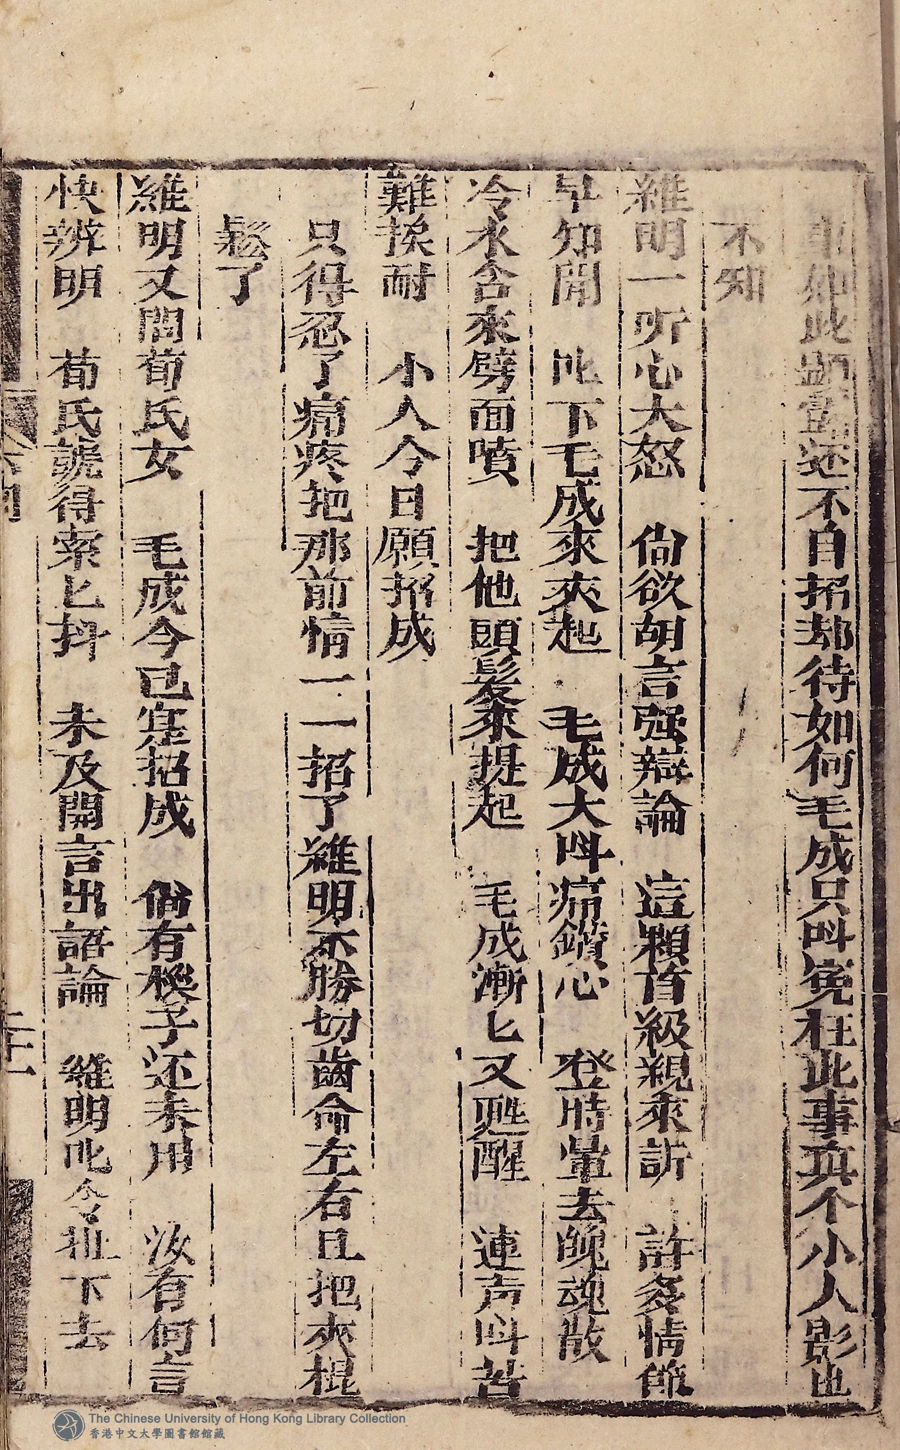 此顕露还不自招却待如何毛成只呌寃枉此事真个小人影也
不知
維明一听心大怒　尙欲胡言强辯論　這顆首級親來訴　許多情節
早知聞　叱下毛成來夾起　毛成大呌痛鑽心　登時暈去魄魂散
冷水含來劈面噴　把他頭髮來提起　毛成漸匕又甦醒　連声呌苦
難挨耐　小人今日願招成
只得忍了痛疼把那前情一一招了維明不勝切齒命左右且把夾棍
鬆了
維明又問荀氏女　毛成今已寔招成　尙有桜子还未用　汝有何言
快辨明　荀氏諕得索匕抖　未及開言出語論　維明叱令扯下去
二十一
The Chinese University of Hong Kong Library Collection
香港中文大學圖書館館藏